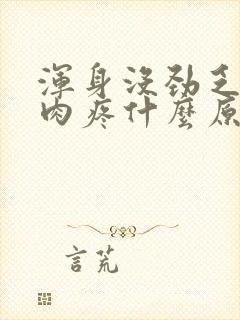 渾身沒勁乏
肉疼什麼原
言荒